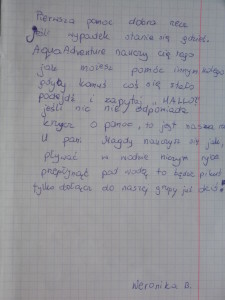 Pierwsza pomoc dobra rzecz
jeśli wypadek stanie się gdzieś.
AquaAdventure nauczy cię tego
jak możesz pomóc innym kolego
gdyby komuś coś się stało
podejdź i zapytaj "HALLO"
jeśli nic nie odpowiada
krzycz o pomoc, to jest nasza
U pani Magdy nauczysz się jak
pływać w wodzie niczym ryba
przepłynąć pod wodą to będzie
tylko dołącz do naszej grupy już dziś.
Weronika B.